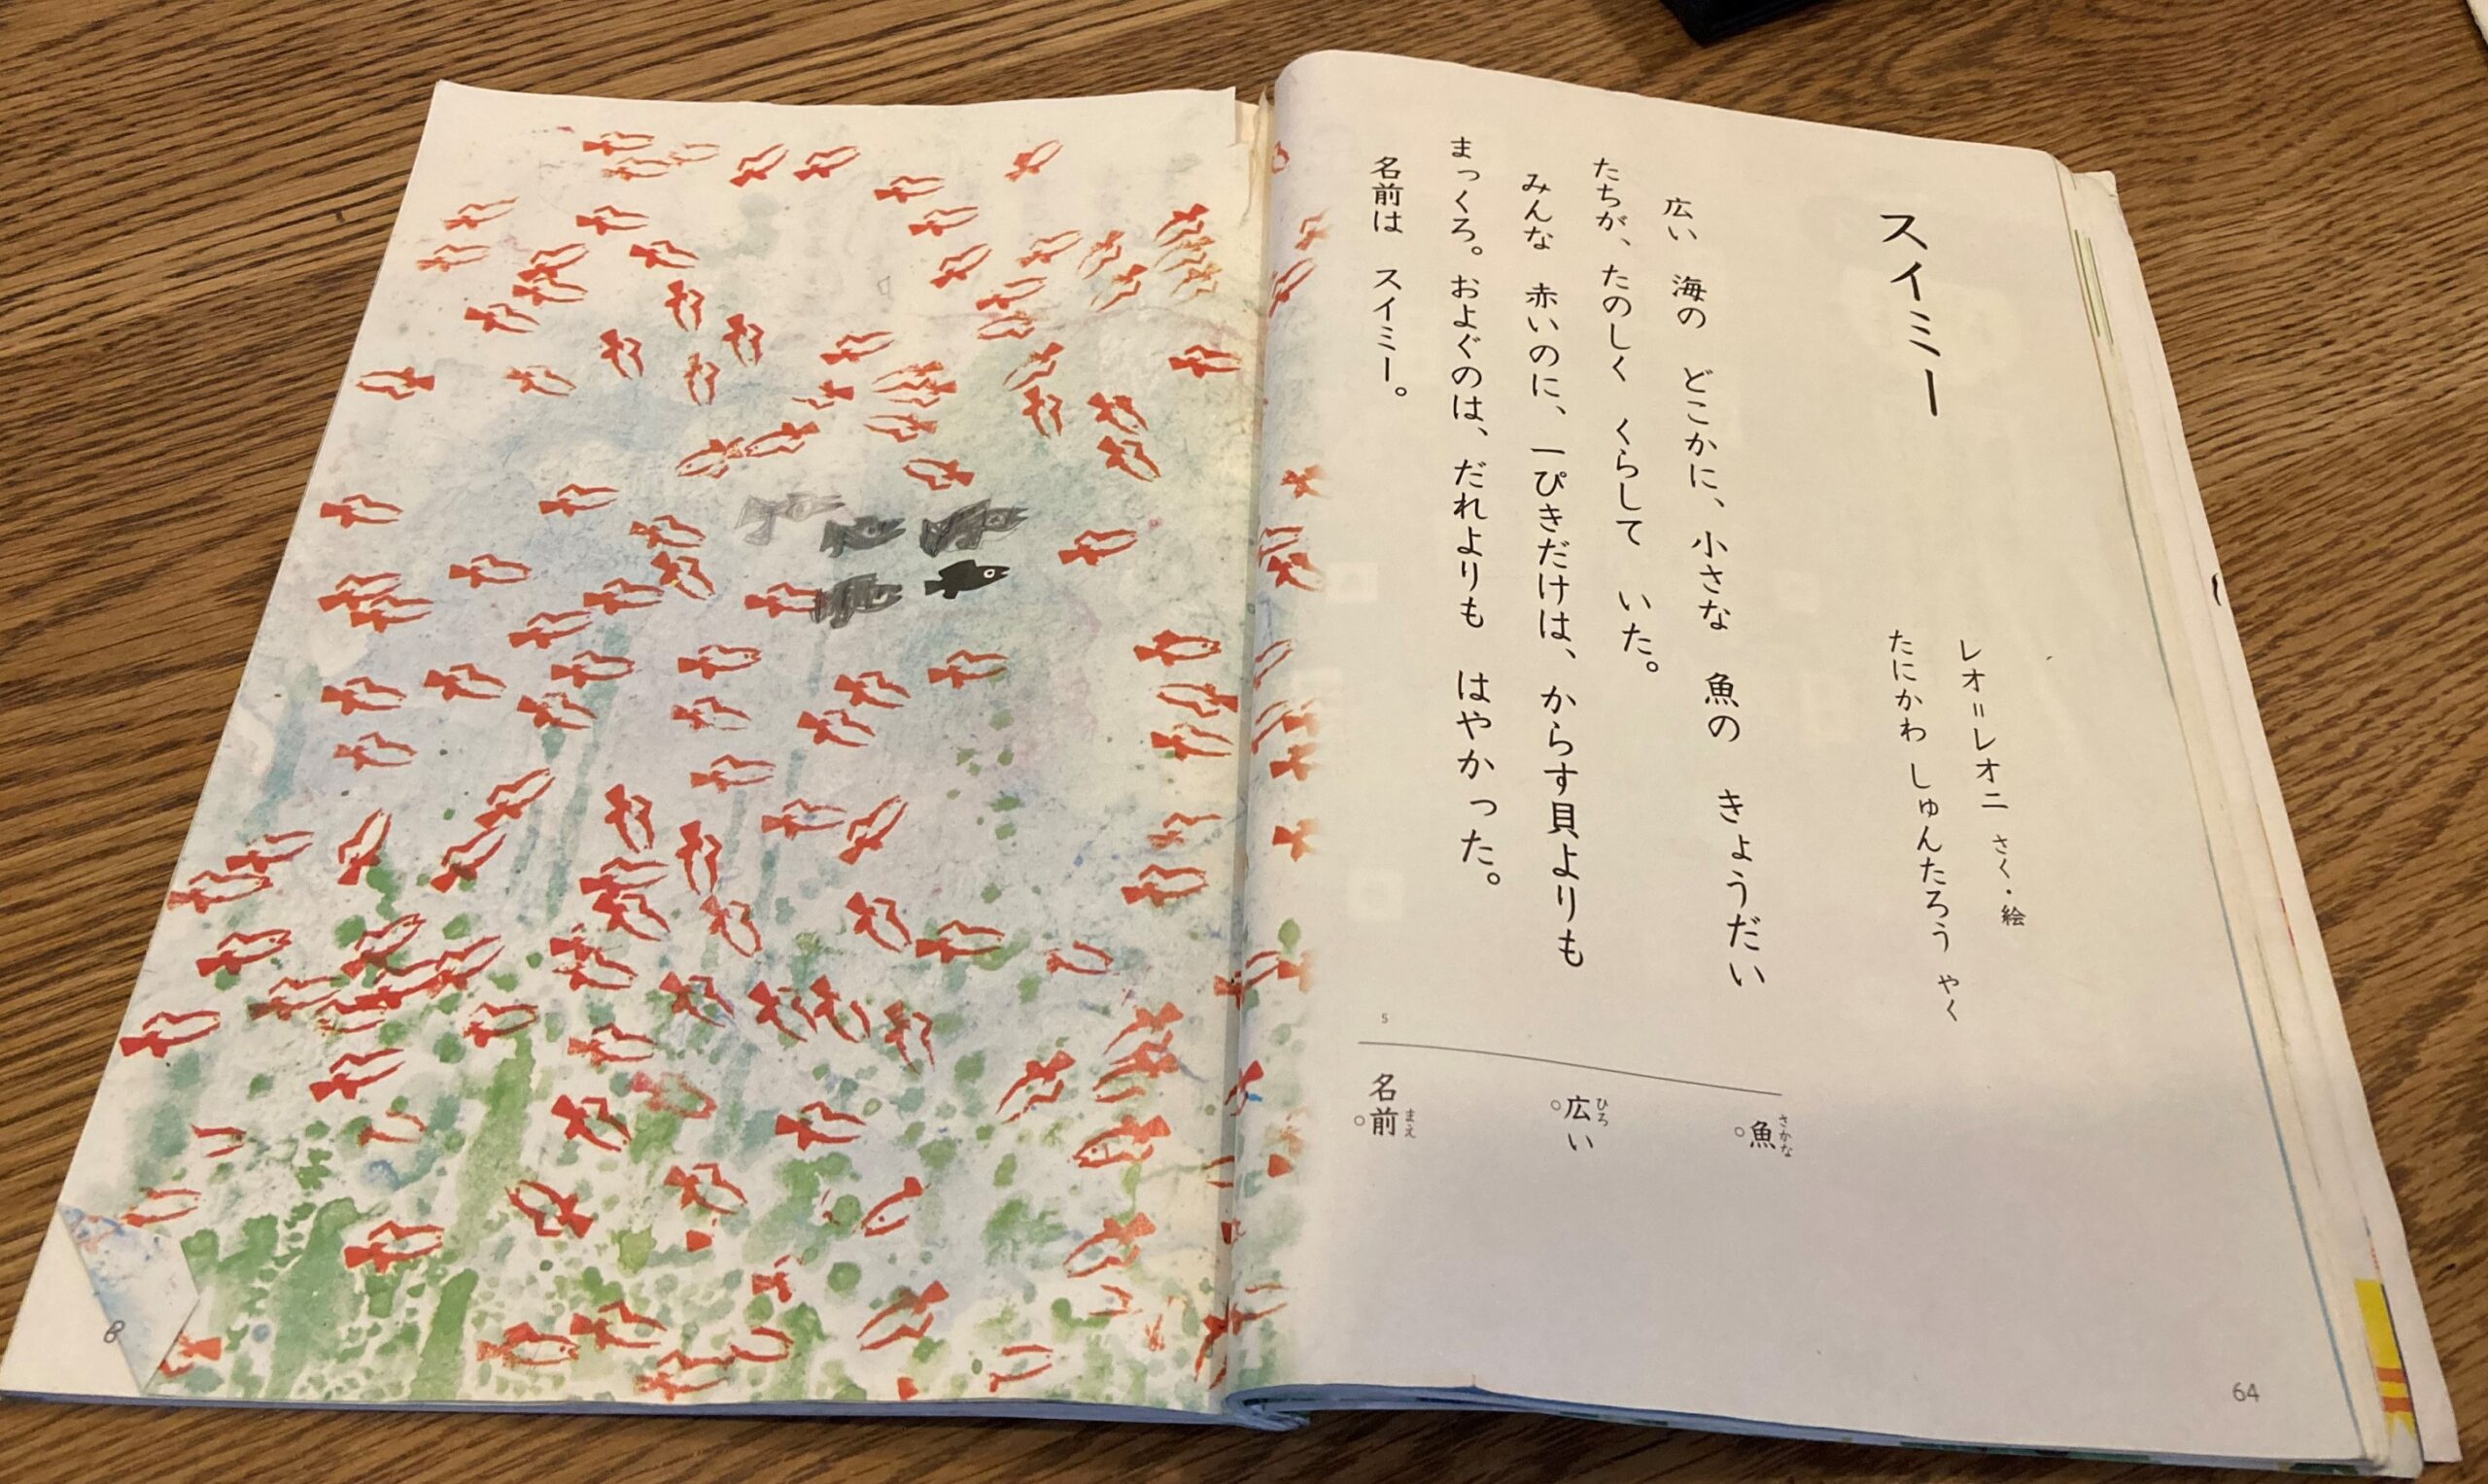 スイミー
レオ=レオニ さく・絵
たにかわ しゅんたろう やく
広い 海の どこかに、小さな 魚の きょうだい
たちが、たのしく くらして いた。
みんな 赤いのに、一ぴきだけは、からす貝よりも
まっくろ。およぐのは、だれよりも はやかった。
名前は スイミー。
5
魚 さかな
広い ひろ
名前 まえ
64